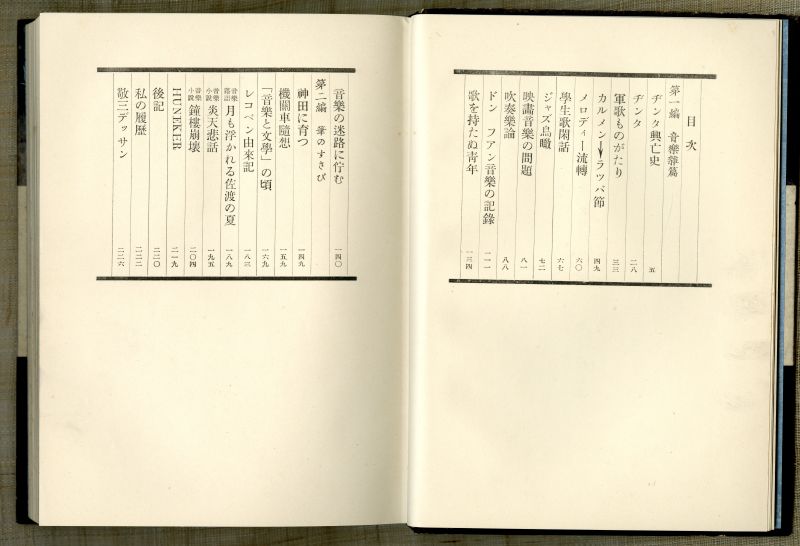 目次
第一編 音樂雜篇
ヂンタ興亡史 五
ヂンタ 二八
軍歌ものがたり 三三
カルメン→ラツパ節 四九
メロディー流轉 六〇
學生歌閑話 六七
ジャズ鳥瞰 七二
映畫音樂の問題 八一
吹奏樂論 八八
ドン フアン音樂の記錄 一一一
歌を持たぬ靑年 一三四
音樂の迷路に佇む 一四〇
第二編 筆のすさび
神田に育つ 一四九
機關車隨想 一五九
「音樂と文學」の頃 一六九
レコベン由來記 一八三
音樂落語 月も浮かれる佐渡の夏 一八九
音樂小說 炎天悲話 一九五
音樂小說 鐘樓崩壞 二〇四
HUNEKER 二一九
後記 二二〇
私の履歷 二二二
敬三デッサン 二二六